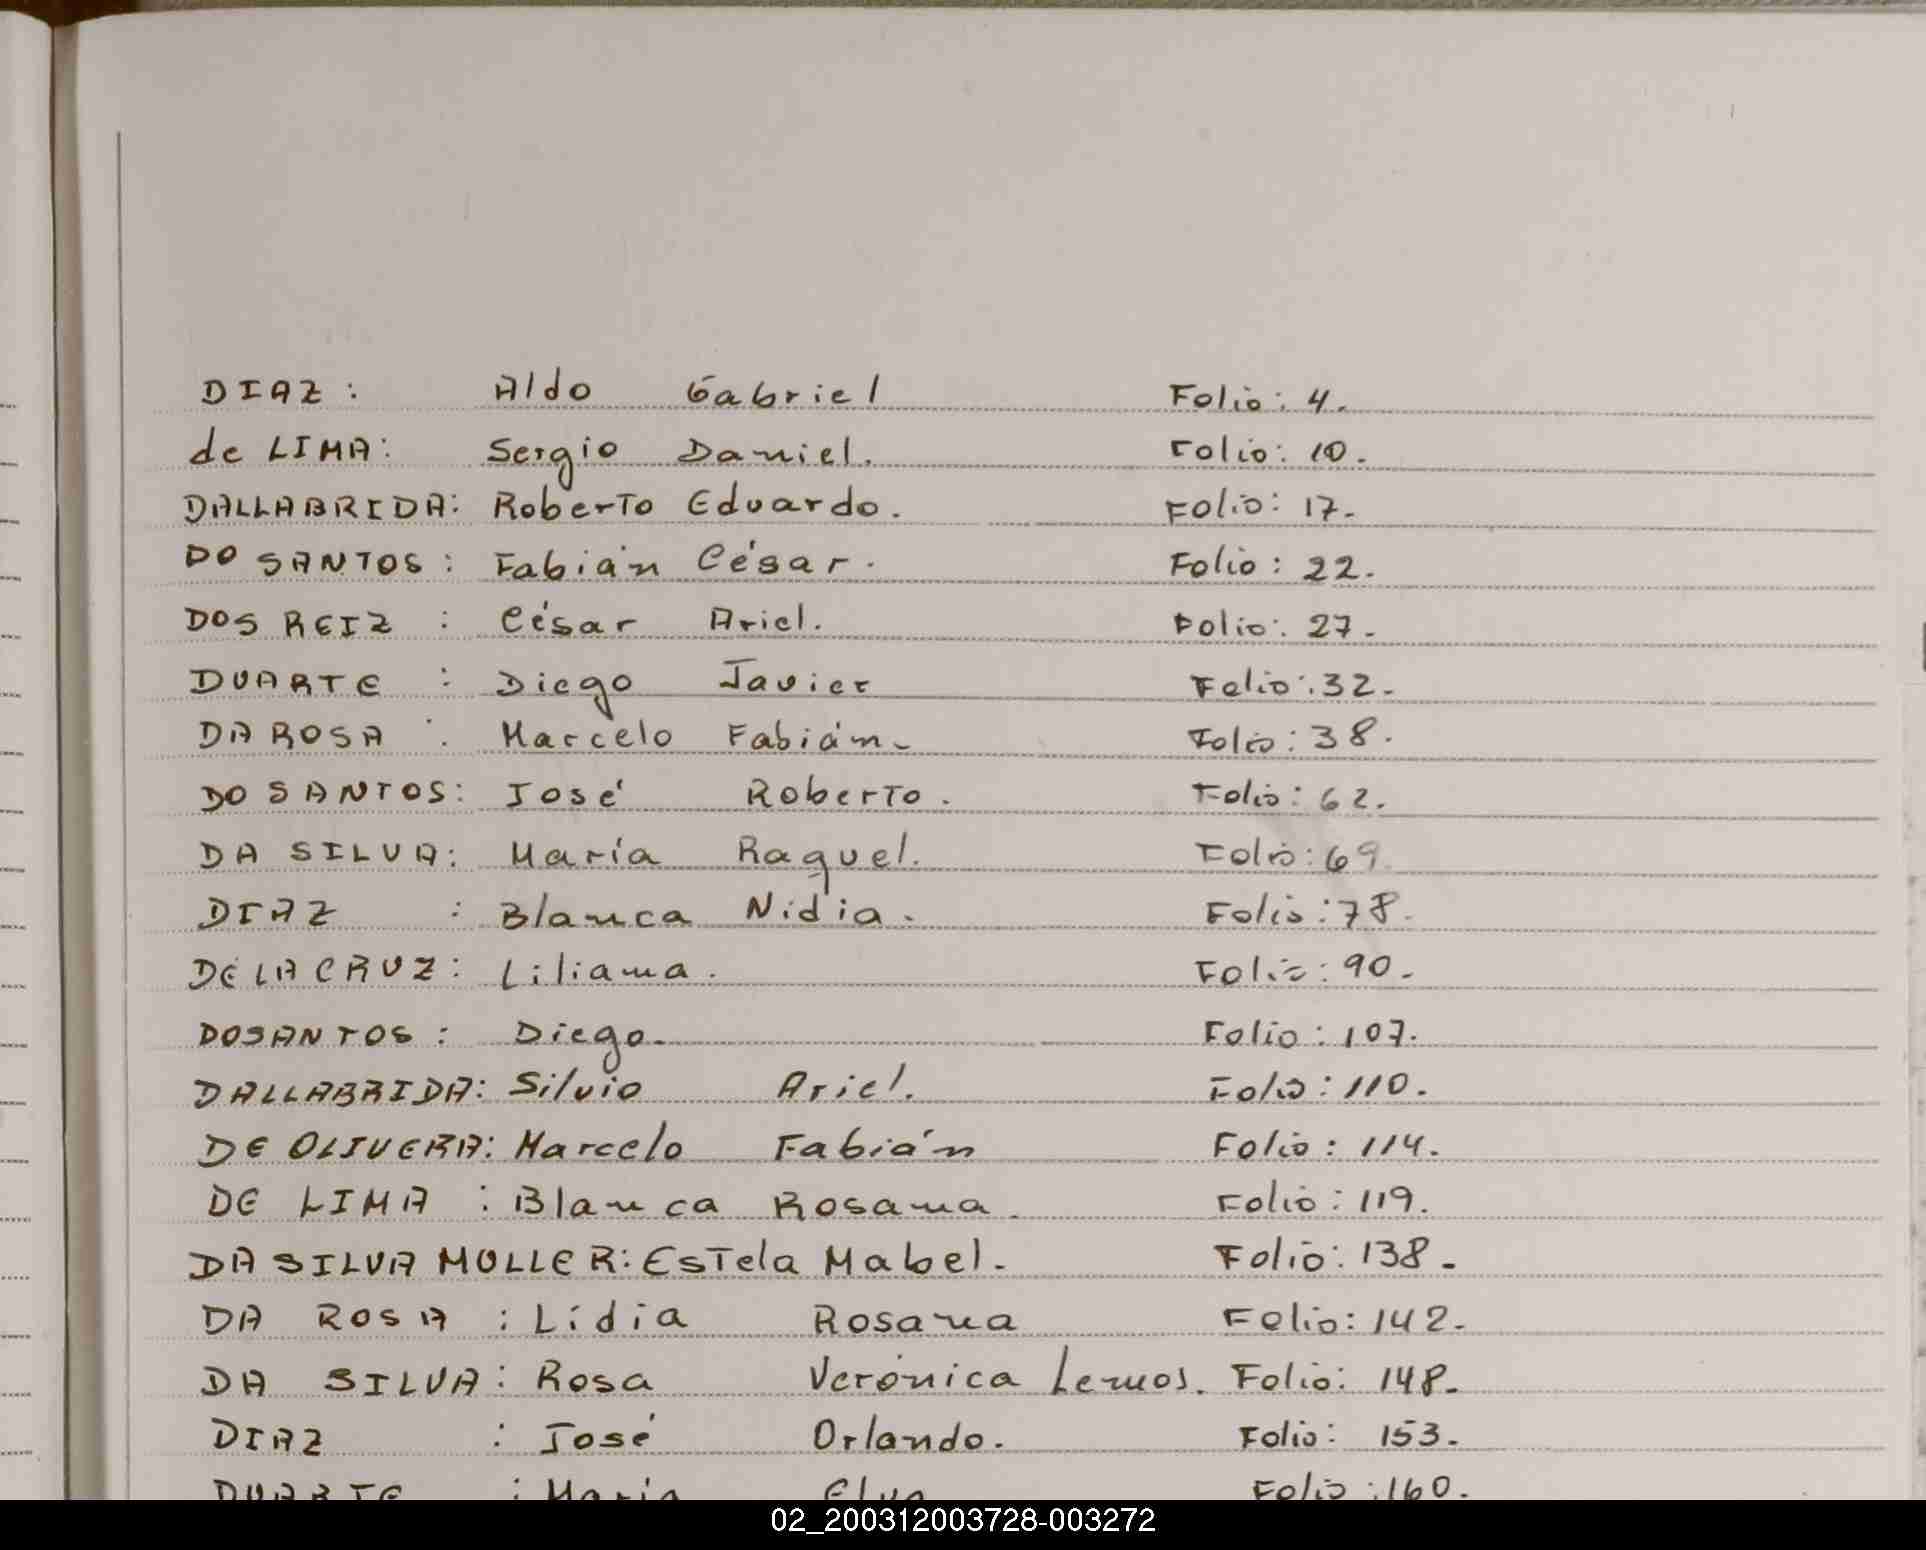 DIAZ: Aldo Gabriel Folio: 4.
de LIMA: Sergio Daniel. Folio: 10.
DALLABRIDA: Roberto Eduardo. Folio: 17.
DO SANTOS: Fabián César. Folio: 22.
DOS REIZ: César Ariel. Folio: 27.
DUARTE: Diego Javier Folio: 32.
DA ROSA: Marcelo Fabián. Folio: 38.
DO SANTOS: José Roberto. Folio: 62.
DA SILVA: María Raquel. Folio: 69.
DIAZ: Blanca Nidia. Folio: 78.
DE LA CRUZ: Liliana. Folio: 90.
DOSANTOS: Diego. Folio: 107.
DALLABRIDA: Silvio Ariel. Folio: 110.
DE OLIVERA: Marcelo Fabián Folio: 114.
DE LIMA: Blanca Rosana. Folio: 119.
DA SILVA MOLLER: Estela Mabel. Folio: 138.
DA ROSA: Lidia Rosana Folio: 142.
DA SILVA: Rosa Verónica Lemos. Folio: 148.
DIAZ: José Orlando. Folio: 153.
DUARTE: María Elva Folio: 160.
02_200312003728-003272